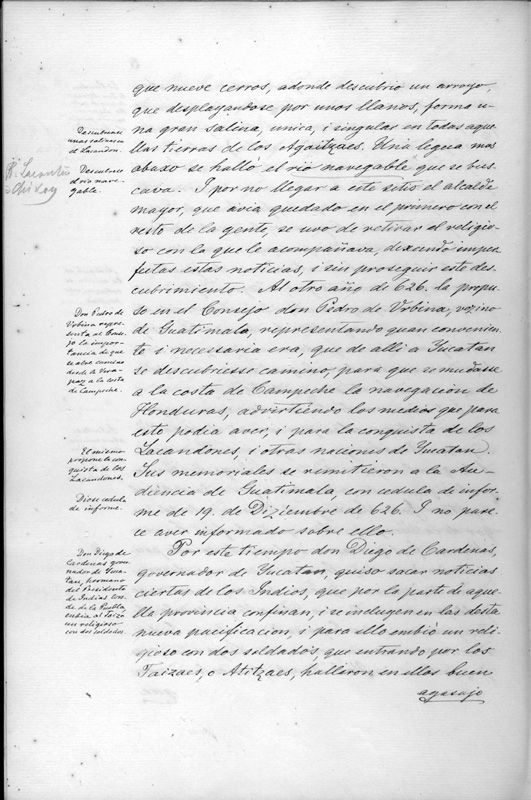 que nueve cerros, adonde descubrio un arroyo,
que desplayandose por unos llanos, forma u-
na gran salina, unica, i singular en todas aque
llas tierras de los Ajaitzaes. Una legua mas
abaxo se halló el rio navegable que se bus-
cava. I por no llegar a este sitio el alcalde
mayor, que avia quedado en el primero con el
resto de la gente, se uvo de retirar el religio-
so con la que le acompañava, dexando imper-
feitas estas noticias, i sin proseguir este des-
cubrimiento. Al otro año de 626. la propu-
so en el Consejo don Pedro de Urbina, vezino
de Guatimala, representando quan convenien-
te i necessaria era, que de alli a Yucatan
se descubriesse camino, para que se mudasse
a la costa de Campeche la navegacion de
Honduras, advirtiendo los medios que para
esto podia aver, i para la conquista de los
Lacandones, i otras naciones de Yucatan.
Sus memoriales se remitieron a la Au-
diencia de Guatimala, con cedula de infor-
me de 19. de Diziembre de 626. I no pare-
ce aver informado sobre ello.
Por este tiempo don Diego de Cardenas,
governador de Yucatan, quiso sacar noticias
ciertas de los Indios, que por la parte de aque-
lla provincia confinan, i se incluyen en las desta
nueva pacificacion, i para ello embió un reli-
gioso con dos soldados, que entrando por los
Taizaes, o Atitzaes, hallaron en ellos buen
agasajo
Descubrense
unas salinas en
el Lacandon.
Descubrese
el rio nave-
gable.
Don Pedro de
Urbina repre-
senta al Conse-
jo la impor-
tancia de que
se abra camino
desde la Vera-
paz a la costa
de Campeche.
El mismo
propone la con-
quista de los
Lacandones.
Diose cedula
de informe.
Don Diego de
Cardenas gover-
nador de Yuca-
tan, hermano
del Presidente
de Indias Con-
de de la Puebla,
embia al Taiza
un religioso
con dos soldados.